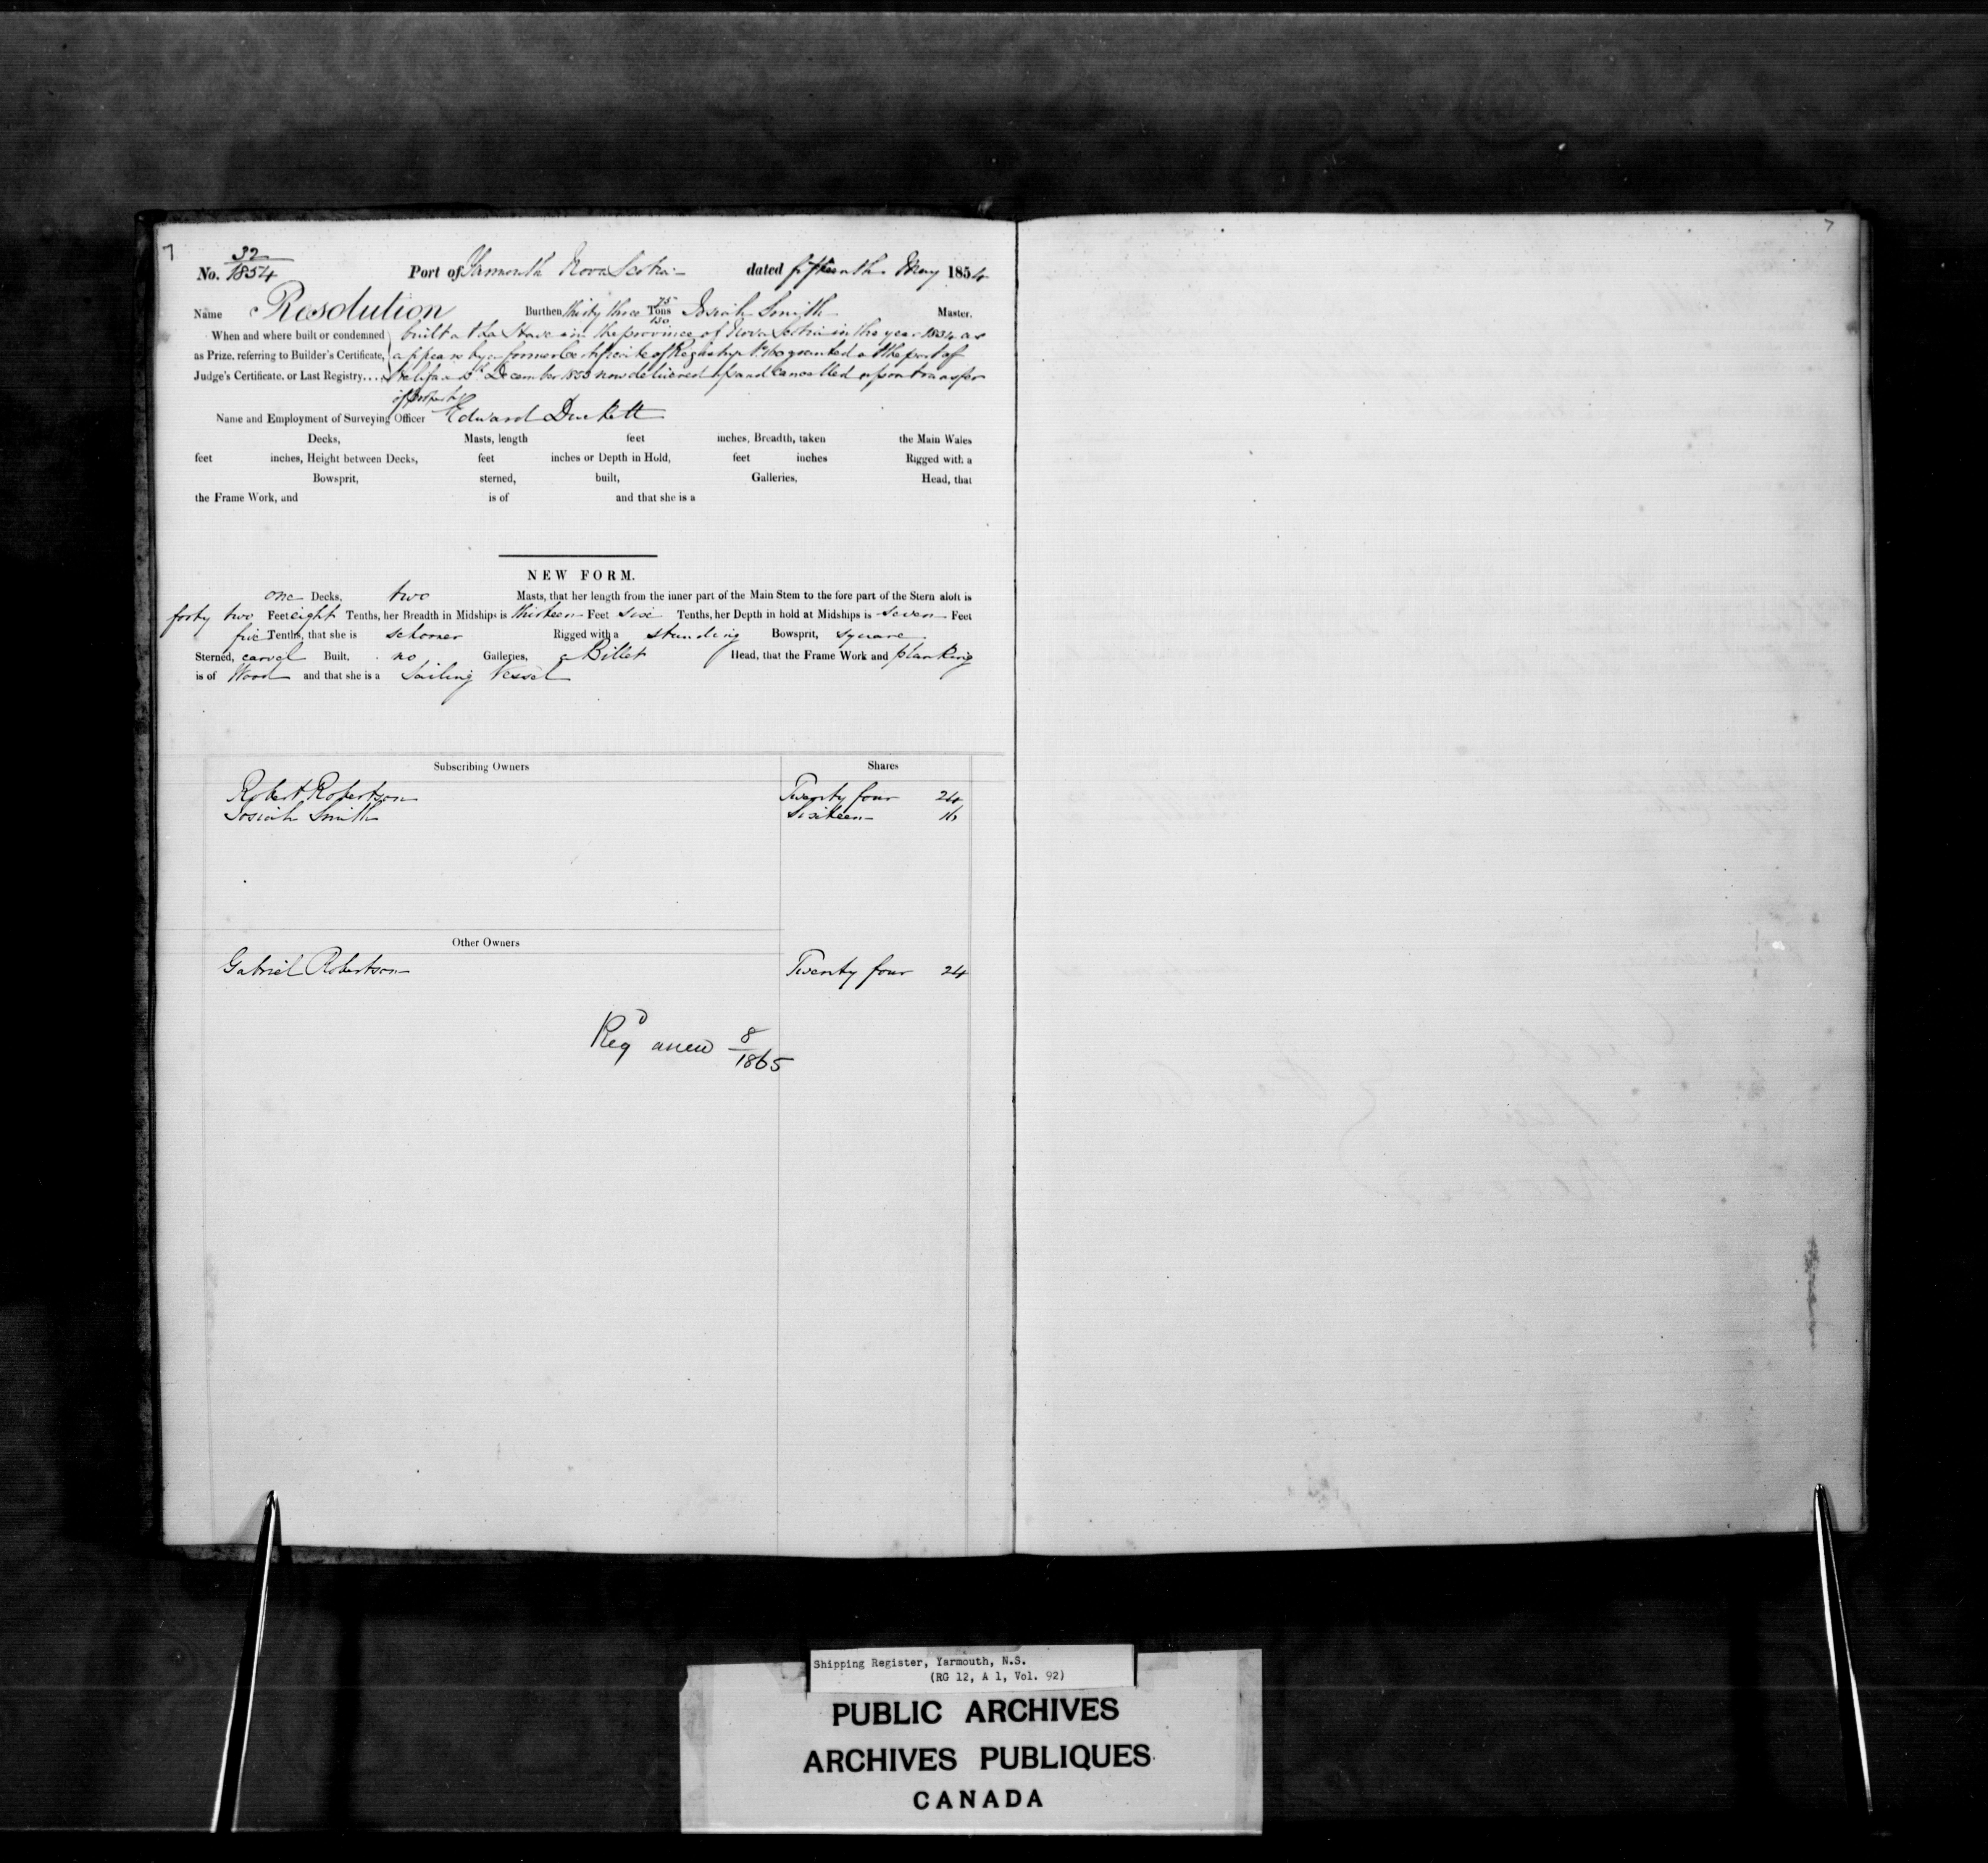 7
7
32
No. 1854 Port of Yarmouth Nova Scotia dated fifteenth May 1854
Name Resolution Burthen thirty three 75 Tons 130 Josiah Smith Master.
When and where built or condemned built at La Have in the province of Nova Scotia in the year 1834 as
as Prize, referring to Builder's Certificate, appears by a former Certificate of Registry No. 160 granted at the port of
Judge's Certificate, or Last Registry.... Halifax December 1853 now delivered up and cancelled upon transfer
of property
Name and Employment of Surveying Officer Edward Duckett
Decks, Masts, length feet inches, Breadth, taken the Main Wales
feet inches, Height between Decks, feet inches or Depth in Hold, feet inches Rigged with a
Bowsprit, sterned, built, Galleries, Head, that
the Frame Work, and is of and that she is a
NEW FORM.
one Decks, two Masts, that her length from the inner part of the Main Stem to the fore part of the Stern aloft is
forty two Feet eight Tenths, her Breadth in Midships is thirteen Feet six Tenths, her Depth in hold at Midships is seven Feet
five Tenths, that she is schooner Rigged with a standing Bowsprit, square
Sterned, carvel Built, no Galleries, a Billet Head, that the Frame Work and planking
is of Wood and that she is a Sailing Vessel
Subscribing Owners Shares
Robert Robertson Twenty four 24
Josiah Smith Sixteen 16
Other Owners
Gabriel Robertson Twenty four 24
Regd anew 8
1865
Shipping Register, Yarmouth, N.S.
(RG 12, A 1, Vol. 92)
PUBLIC ARCHIVES
ARCHIVES PUBLIQUES
CANADA